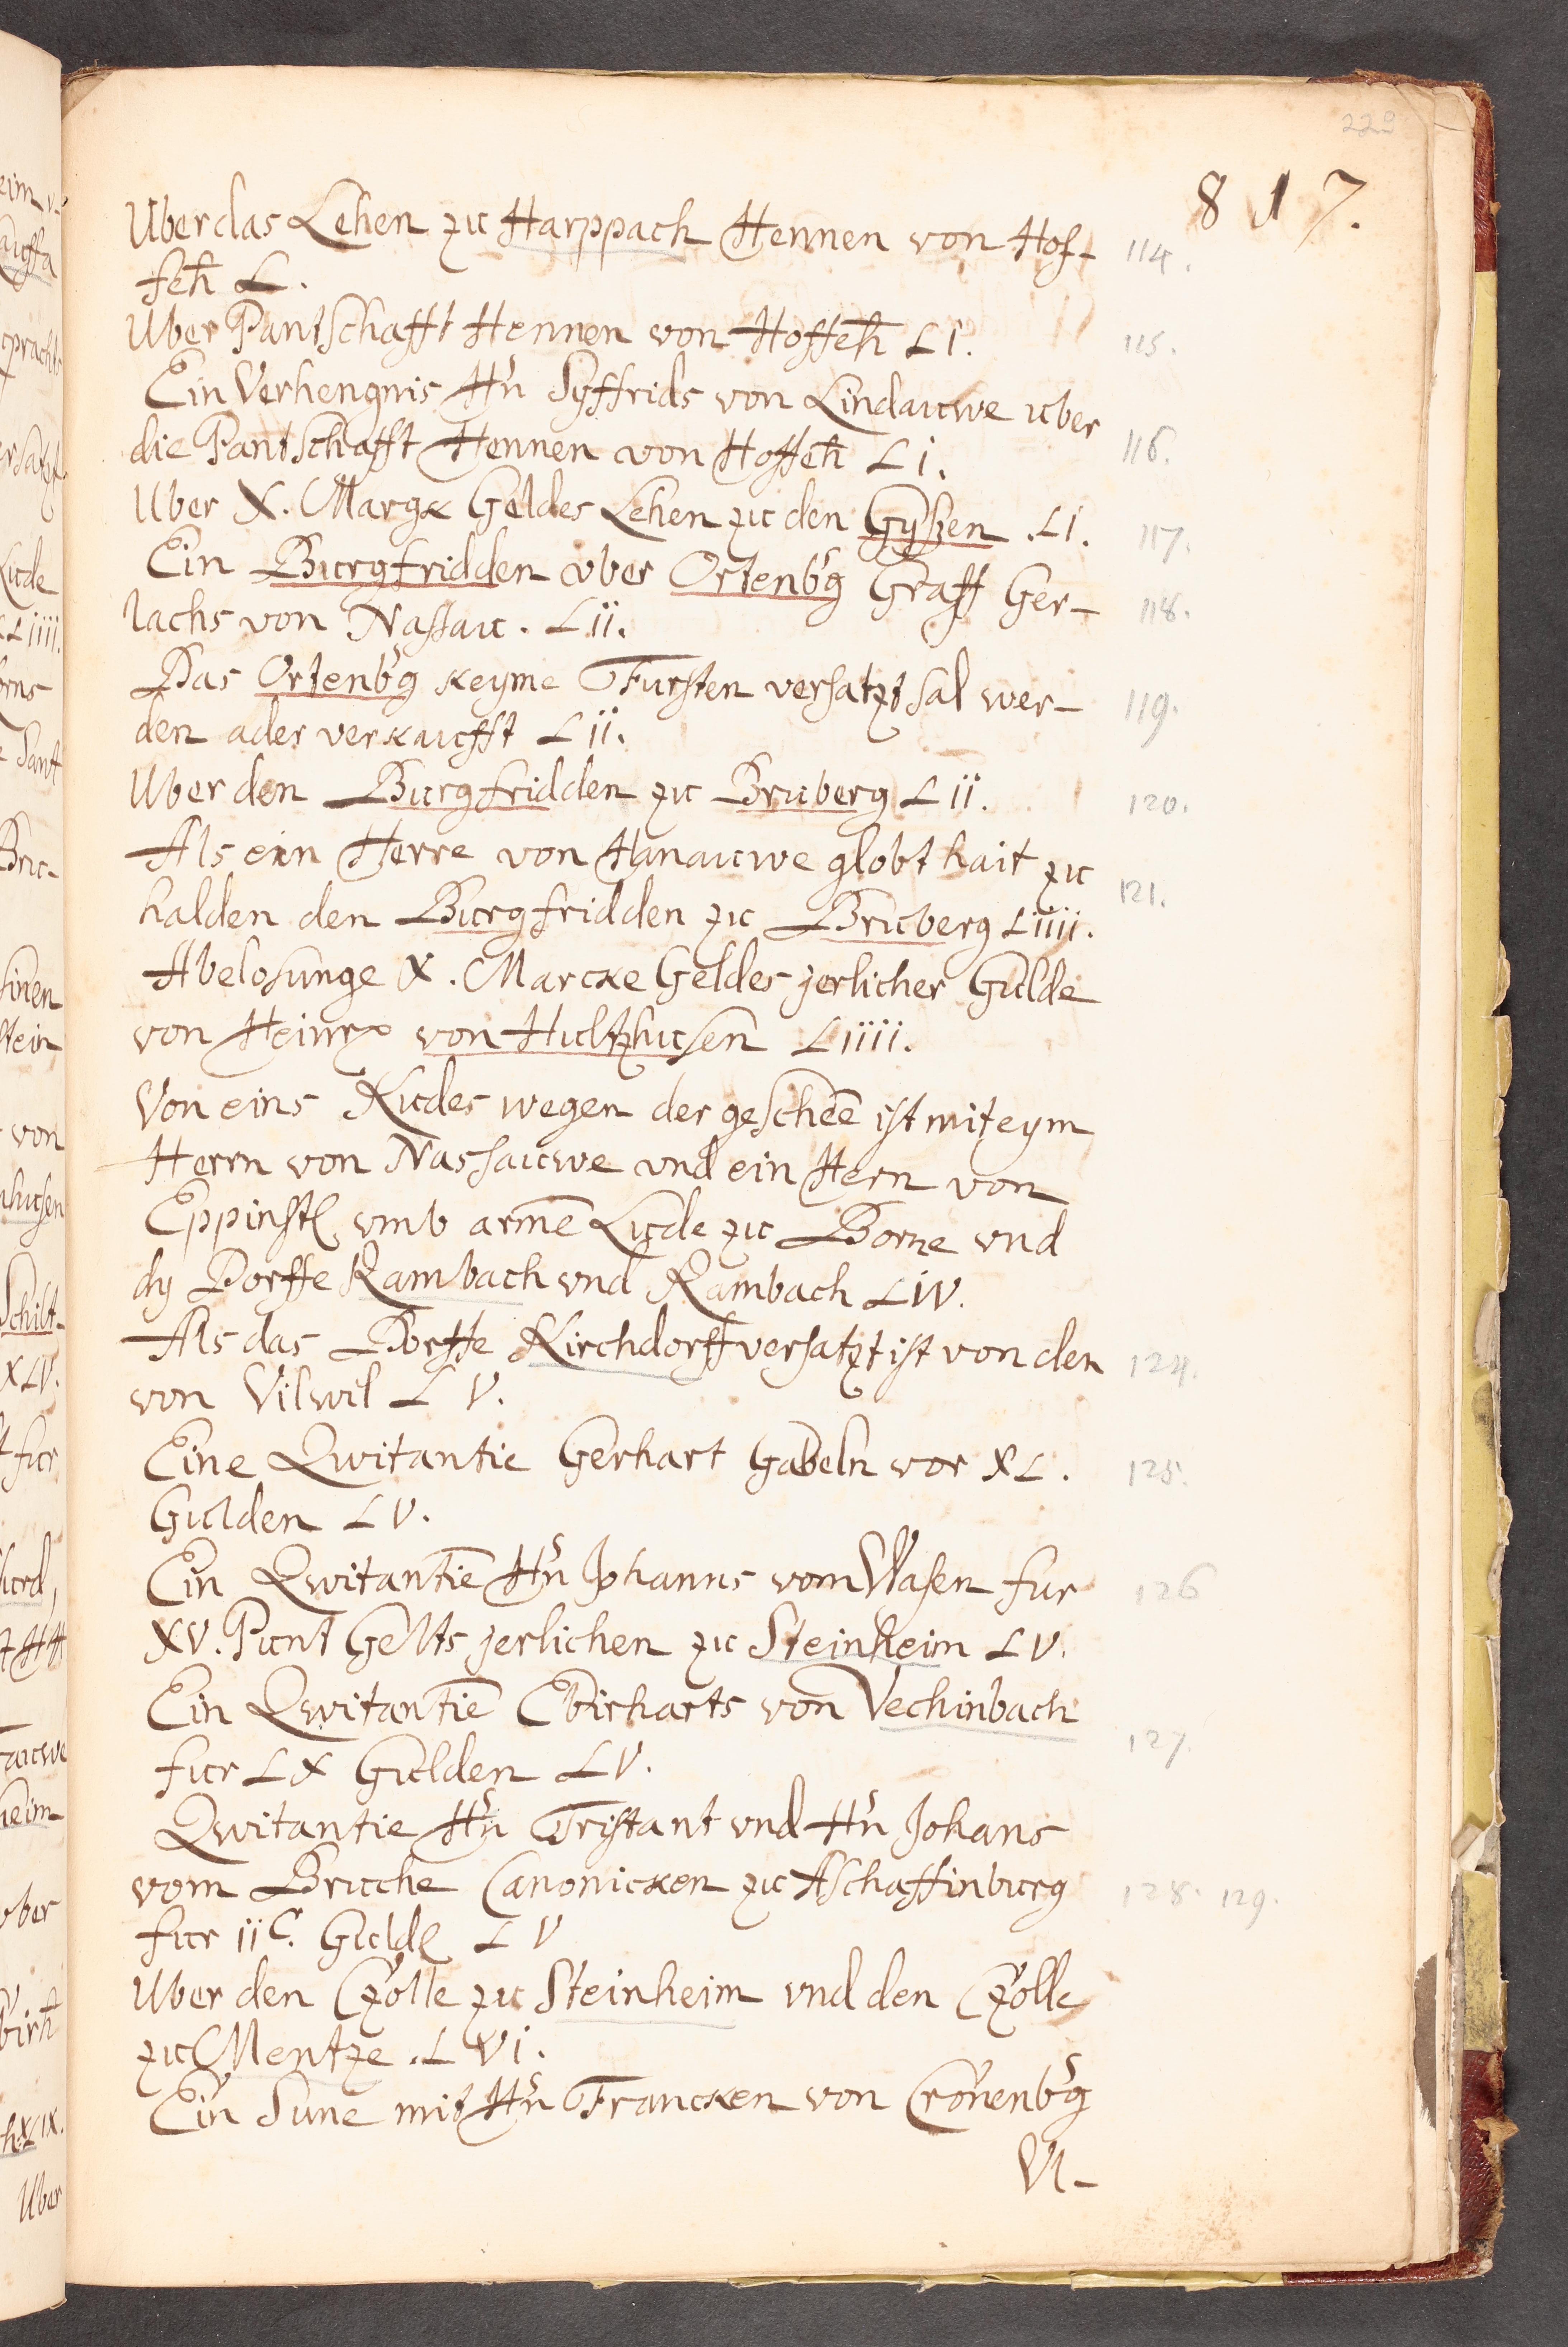 220
817.
Uber das Lehen zu Harppach Hennen von Hof- 114.
feh̄ L.
Uber Pantschafft Hennen von Hoffeh̄ LI. 115.
Ein Verhengnis Hn̄ Syffrids von Lindauwe uber
die Pantschafft Hennen von Hoffeh̄ LI. 116.
Uber X. Margk Geldes Lehen zu den Gyßen .LI. 117.
Ein Burgfridden vber Ortenb'g Graff Ger- 118.
lachs von Nassau. LII.
Das Ortenb'g keyme Fursten versatzt sal wer- 119.
den ader verkaufft LII.
Uber den Burgfridden zu Bruberg LII. 120.
Als ein Herre von Hanauwe globt hait zu
halden den Burgfridden zu Bruberg LIIII. 121.
Abelosunge X. Marcke Geldes jerlicher Gulde
von Heinr von Hultzhusen LIIII.
Von eins Rudes wegen der gescheē ist mit eym
Herrn von Nassauwe vnd ein Hern von
Eppinst vmb armē Lude zu Borne vnd
dy Dorffe Rambach vnd Rambach LIV.
Als das Dorffe Kirchdorff versatzt ist von den 124.
von Vilwil LV.
Eine Qwitantie Gerhart Gabeln vor XL. 125.
Gulden LV.
Ein Qwitantiē Hn̄ Johanns vom Wasen fur 126
XV. Punt Gelts jerlichen zu Steinheim LV.
Ein Qwitantiē Ebirharts von Vechinbach
fur LX Gulden LV. 127.
Qwitantie Hn̄ Tristant vnd Hn̄ Johans
vom Bruche Canonicken zu Aschaffinburg 128. 129.
fur IIC. Guld LV
Uber den Czolle zu Steinheim vnd den Czolle
zu Mentze .LVI.
Ein Sune mit Hn̄ Francken von Cronenb'g
VI-